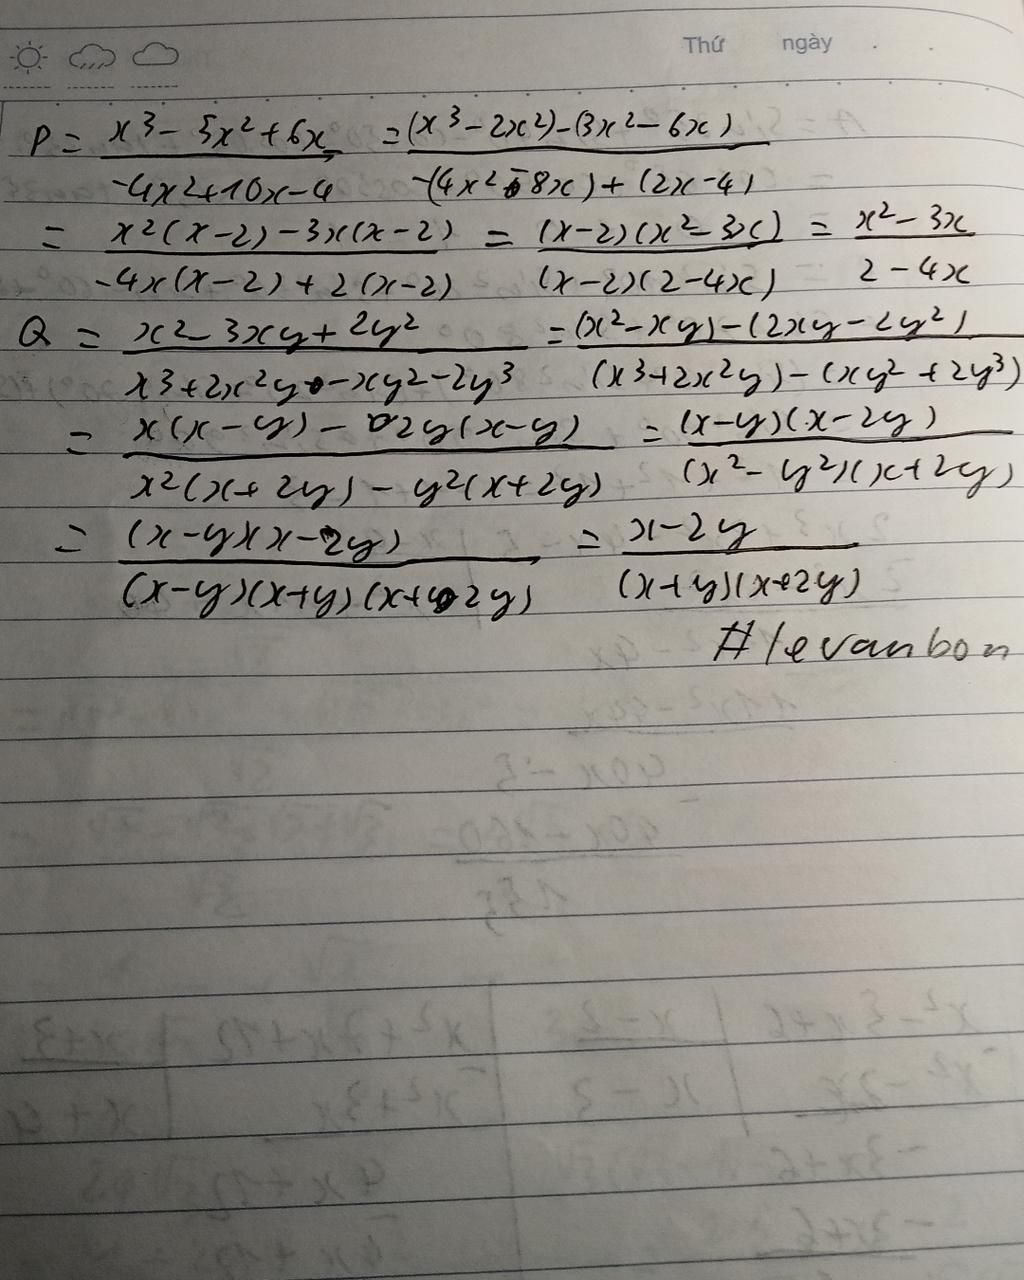 Thứ ngày
P = x³ - 5x² + 6x / -4x² + 10x - 4 = (x³ - 2x²) - (3x² - 6x) / -(4x² - 8x) + (2x - 4)
= x²(x-2) - 3x(x-2) / -4x(x-2) + 2(x-2) = (x-2)(x² - 3x) / (x-2)(2-4x) = x² - 3x / 2 - 4x
Q = x² - 3xy + 2y² / x³ + 2x²y - xy² - 2y³ = (x² - xy) - (2xy - 2y²) / (x³ + 2x²y) - (xy² + 2y³)
= x(x-y) - 2y(x-y) / x²(x + 2y) - y²(x + 2y) = (x-y)(x-2y) / (x² - y²)(x + 2y)
= (x-y)(x-2y) / (x-y)(x+y)(x+2y) = x - 2y / (x+y)(x+2y)
#levanbon